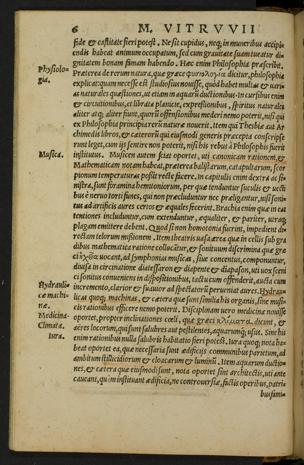 6 M. VITRVVII
fide & castitate fieri potest. Ne sit cupidus, neque in muneribus accipi
endis habeat animum occupatum, sed cum grauitate suam tueatur di
gnitatem bonam famam habendo. Hæc enim Philosophia præscribit.
Physiolo-
gia.
Præterea de rerum natura, quæ græcè φυσιολογία dicitur, philosophia
explicat: quam necesse est studiosius nouisse, quòd habet multas & varias
naturales quæstiones, ut etiam in aquarum ductionibus. In cursibus enim
& circuitionibus, et librata planicie, expressionibus, spiritus naturales
aliter atque aliter fiunt, quorum offensionibus mederi nemo poterit, nisi qui
ex Philosophia principia rerum naturæ nouerit. Item qui Thesbiæ aut Ar
chimedis libros, & cæterorum qui eiusmodi generis præcepta conscripse
runt leget, cum ijs sentire non poterit, nisi his rebus à Philosophis fuerit
Musica.
institutus. Musicen autem sciat oportet, uti canonicam rationem, &
Mathematicam notam habeat, præterea balistarum, catapultarum, scor-
pionum temperaturas possit rectè facere. In capitulis enim dextra ac si-
nistra, sunt foramina hemitoniorum, per quæ tenduntur suculis & uecti
bus è neruo torti funes, qui non præcluduntur nec præligantur, nisi soni-
tus ad artificis aures certos & æquales fecerint. Brachia enim quæ in eas
tentiones includuntur, cum extenduntur, æqualiter, & pariter, utraque
plagam emittere debent. Quòd si non homotonia fuerint, impedient di-
rectam telorum missionem. Item theatris uasa ærea quæ in cellis sub gra
dibus mathematica ratione collocantur, & sonituum discrimina quæ græ
ci ἠχεῖα uocant, ad symphonias musicas, siue concentus, componuntur,
diuisa in circinatione diatessaron & diapente & diapason, uti uox sceni
ci sonitus conueniens in dispositionibus, tactu cum offenderit, aucta cum
Hydrauli
cæ machi-
næ.
incremento, clarior & suauior ad spectatorum perueniat aures. Hydrau-
licas quoque machinas, & cætera quæ sunt similia his organis, sine musi-
cis rationibus efficere nemo poterit. Disciplinam uero medicinæ nouisse
Medicina.
Climata.
oportet, propter inclinationes cœli, quæ græci κλίματα dicunt, &
aeres locorum, qui sunt salubres aut pestilentes, aquarumque usus. Sine his
tura.
enim rationibus nulla salubris habitatio fieri potest. Iura quoque nota ha-
beat oportet ea, quæ necessaria sunt ædificijs communibus parietum, ad
ambitum stillicidiorum & cloacarum & luminum. Item aquarum ductio-
nes, & cætera quæ eiusmodi sunt, nota oportet sint architectis, uti ante
caueant, quàm instituant ædificia, ne controuersiæ, factis operibus, patri-
bus fami-